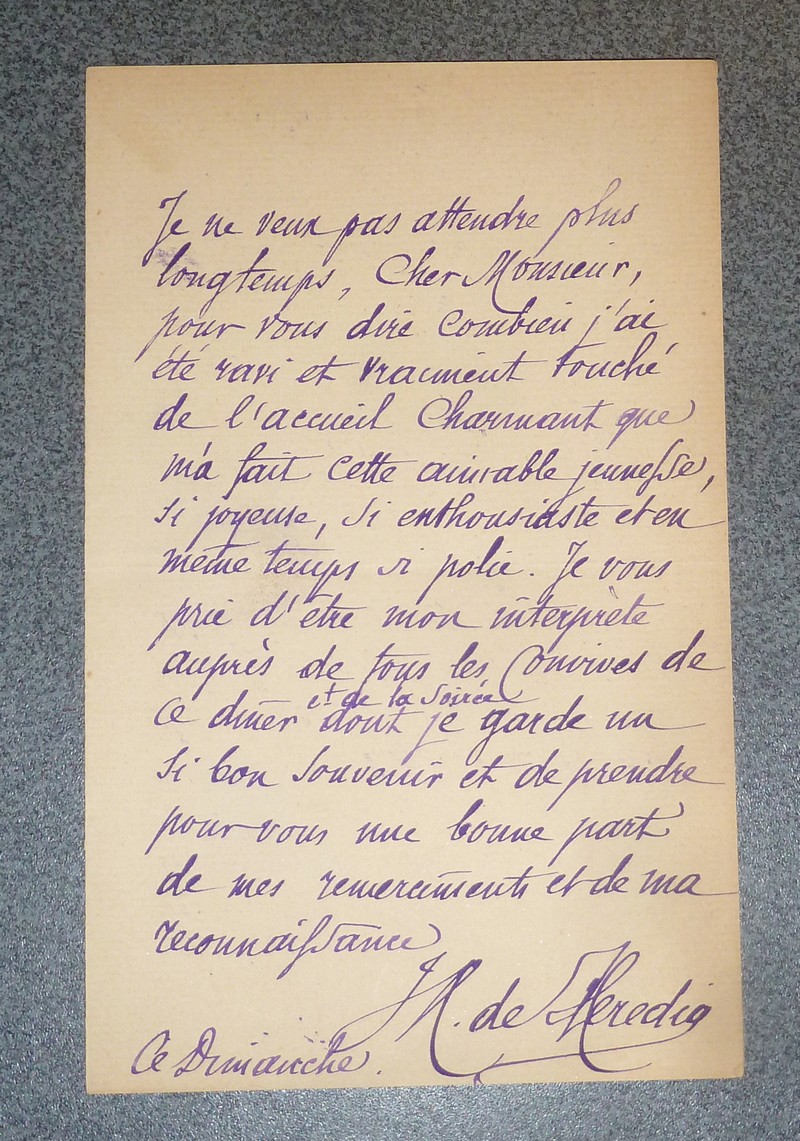 Je ne veux pas attendre plus
longtemps, Cher Monsieur,
pour vous dire combien j'ai
été ravi et vraiment touché
de l'accueil charmant que
m'a fait cette aimable jeunesse,
si joyeuse, si enthousiaste et en
même temps si polie. Je vous
prie d'être mon interprète
auprès de tous les convives de
et de la soirée
ce dîner dont je garde un
si bon souvenir et de prendre
pour vous une bonne part
de mes remerciments et de ma
reconnaissance
JM. de Heredia
Ce Dimanche.